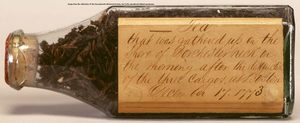 Tea
that was gathered up on the
shore of Dorchester neck on
the morning after the destruction
of the three Cargos at Boston
December 17, 1773